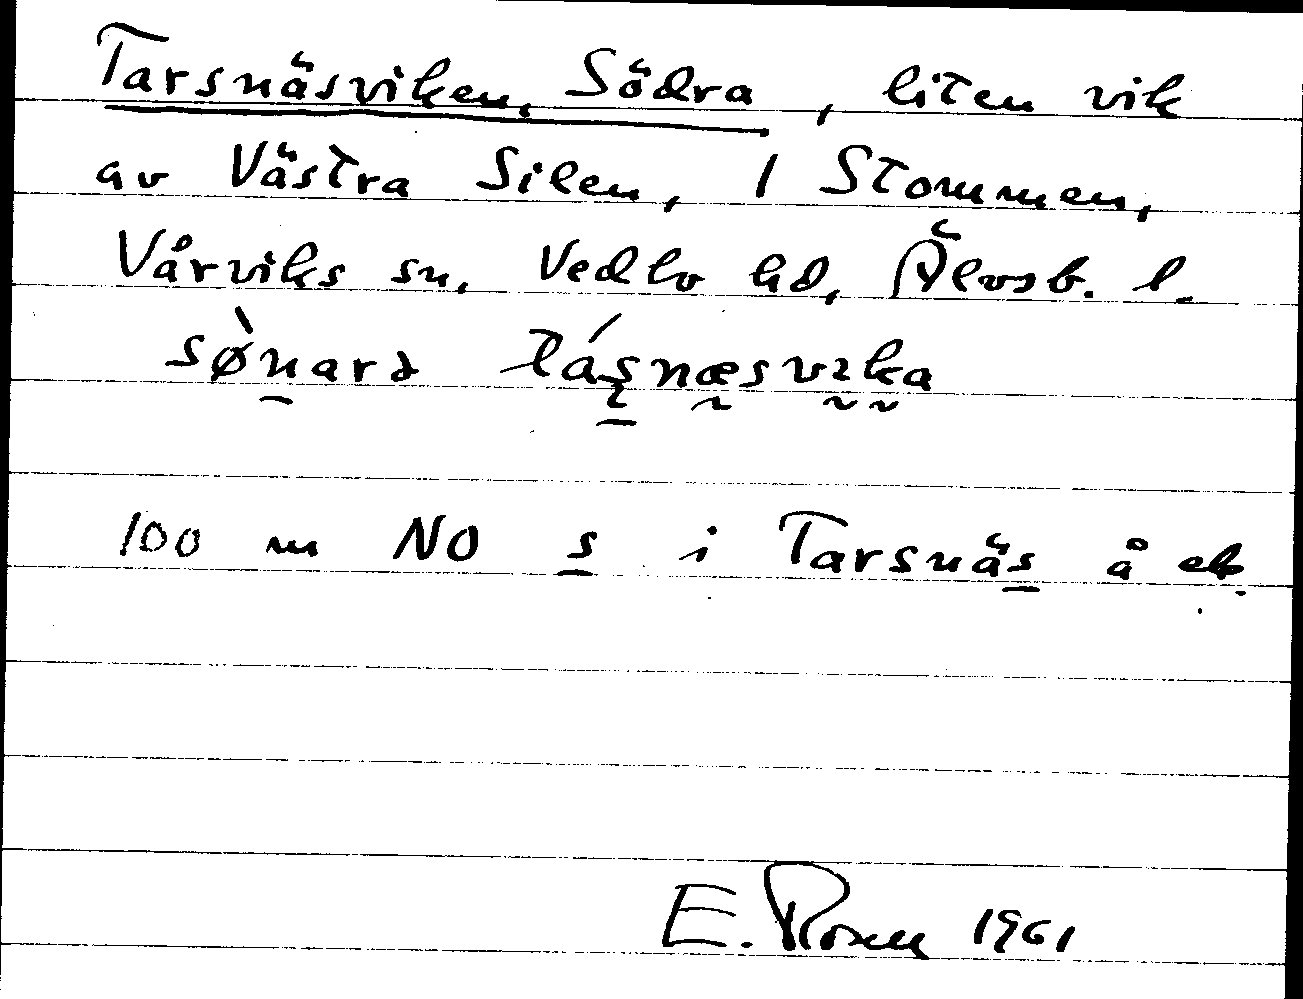 Tarsnäsviken, Södra, liten vik
av Västra Silen, 1 Stommen,
Vårviks sn. Vedbo hd, Älvsb. l.
sø̀narə tás̨næsvıka
100 m NO s i Tarsnäs å ek.
E. Rosen 1961